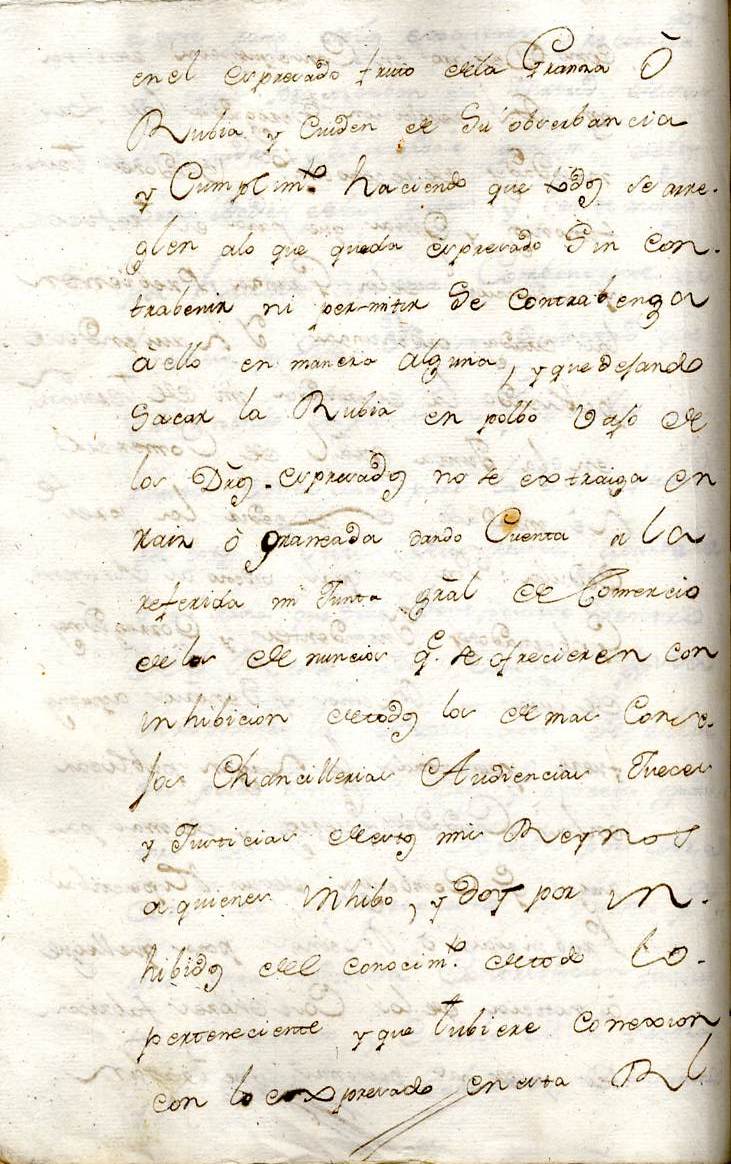 en el expresado fruto de la Granza Ô
Rubia y Cuiden de Su obserbancia
y Cumplim.to haciendo que todos se arre-
glen alo que queda expresado Sin con-
trabenir ni permitir Se contrabenga
aello en manera alguna, y que dejando
Sacar la Rubia en polbo vajo de
los Dros. expresados no se extraiga en
Raiz ò graneada dando Cuenta a la
referida mi Junta gral de Comercio
de las denuncias q.e se ofrecieren con
inhibicion de todos los demas Conse-
jos Chancillerias Audiencias Jueces
y Justicias de estos mis Reynos
a quienes inhibo, y doy por in-
hibidos del conocim.to de todo lo
perteneciente y que tubiere conexion
con lo expresado en esta Rl